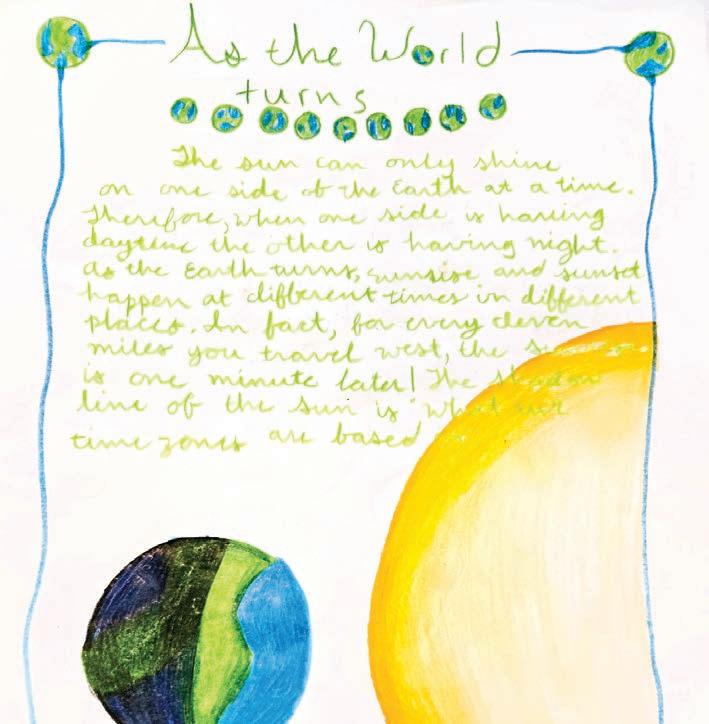 As the World
turns
The sun can only shine
on one side of the Earth at a time.
Therefore, when one side is having
daytime the other is having night.
As the Earth turns, sunrise and sunset
happen at different times in different
places. In fact, for every eleven
miles you travel west, the
is one minute later! The shadow
line of the sun is what our
time zones are based